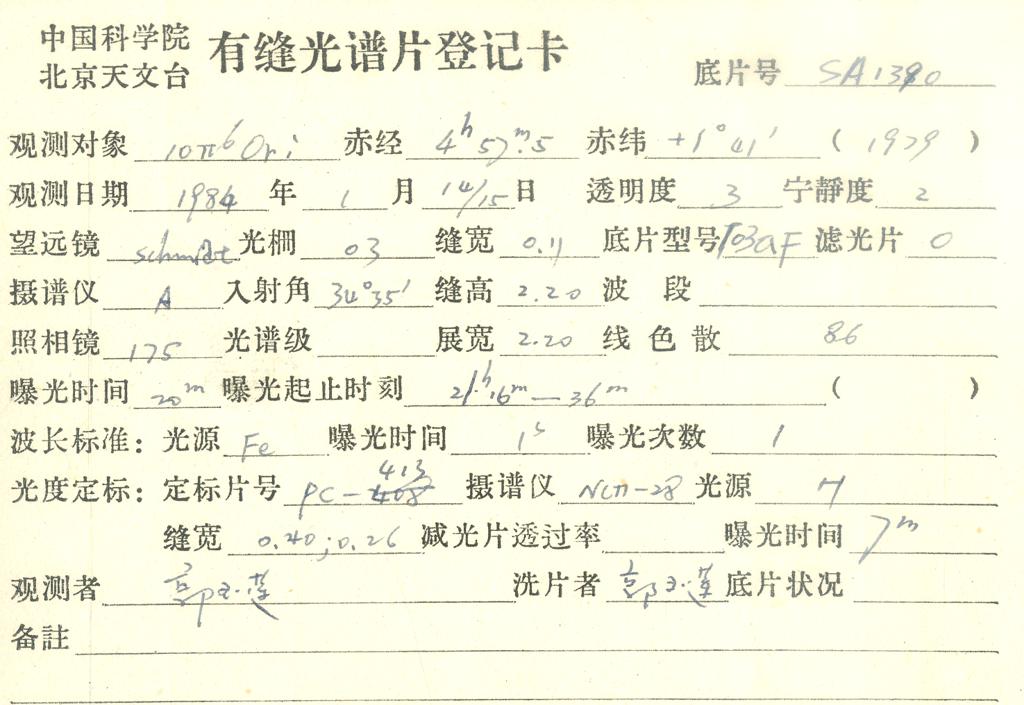 中国科学院
北京天文台
有缝光谱片登记卡
底片号 SA1390
观测对象 10π6 Ori 赤经 4h57m.5 赤纬 +1°41′ (1979)
观测日期 1984 年 1 月 14/15 日 透明度 3 宁静度 2
望远镜 schmidt 光栅 03 缝宽 0.11 底片型号 103aF 滤光片 0
摄谱仪 A 入射角 34°35′ 缝高 2.20 波段
照相镜 175 光谱级 展宽 2.20 线色散 86
曝光时间 20m 曝光起止时刻 21h16m—36m ( )
波长标准: 光源 Fe 曝光时间 1s 曝光次数 1
光度定标: 定标片号 PC-413 摄谱仪 光源
缝宽 0.40;0.26 减光片透过率 曝光时间 7m
观测者 郭玉莲 洗片者 郭玉莲 底片状况
备註